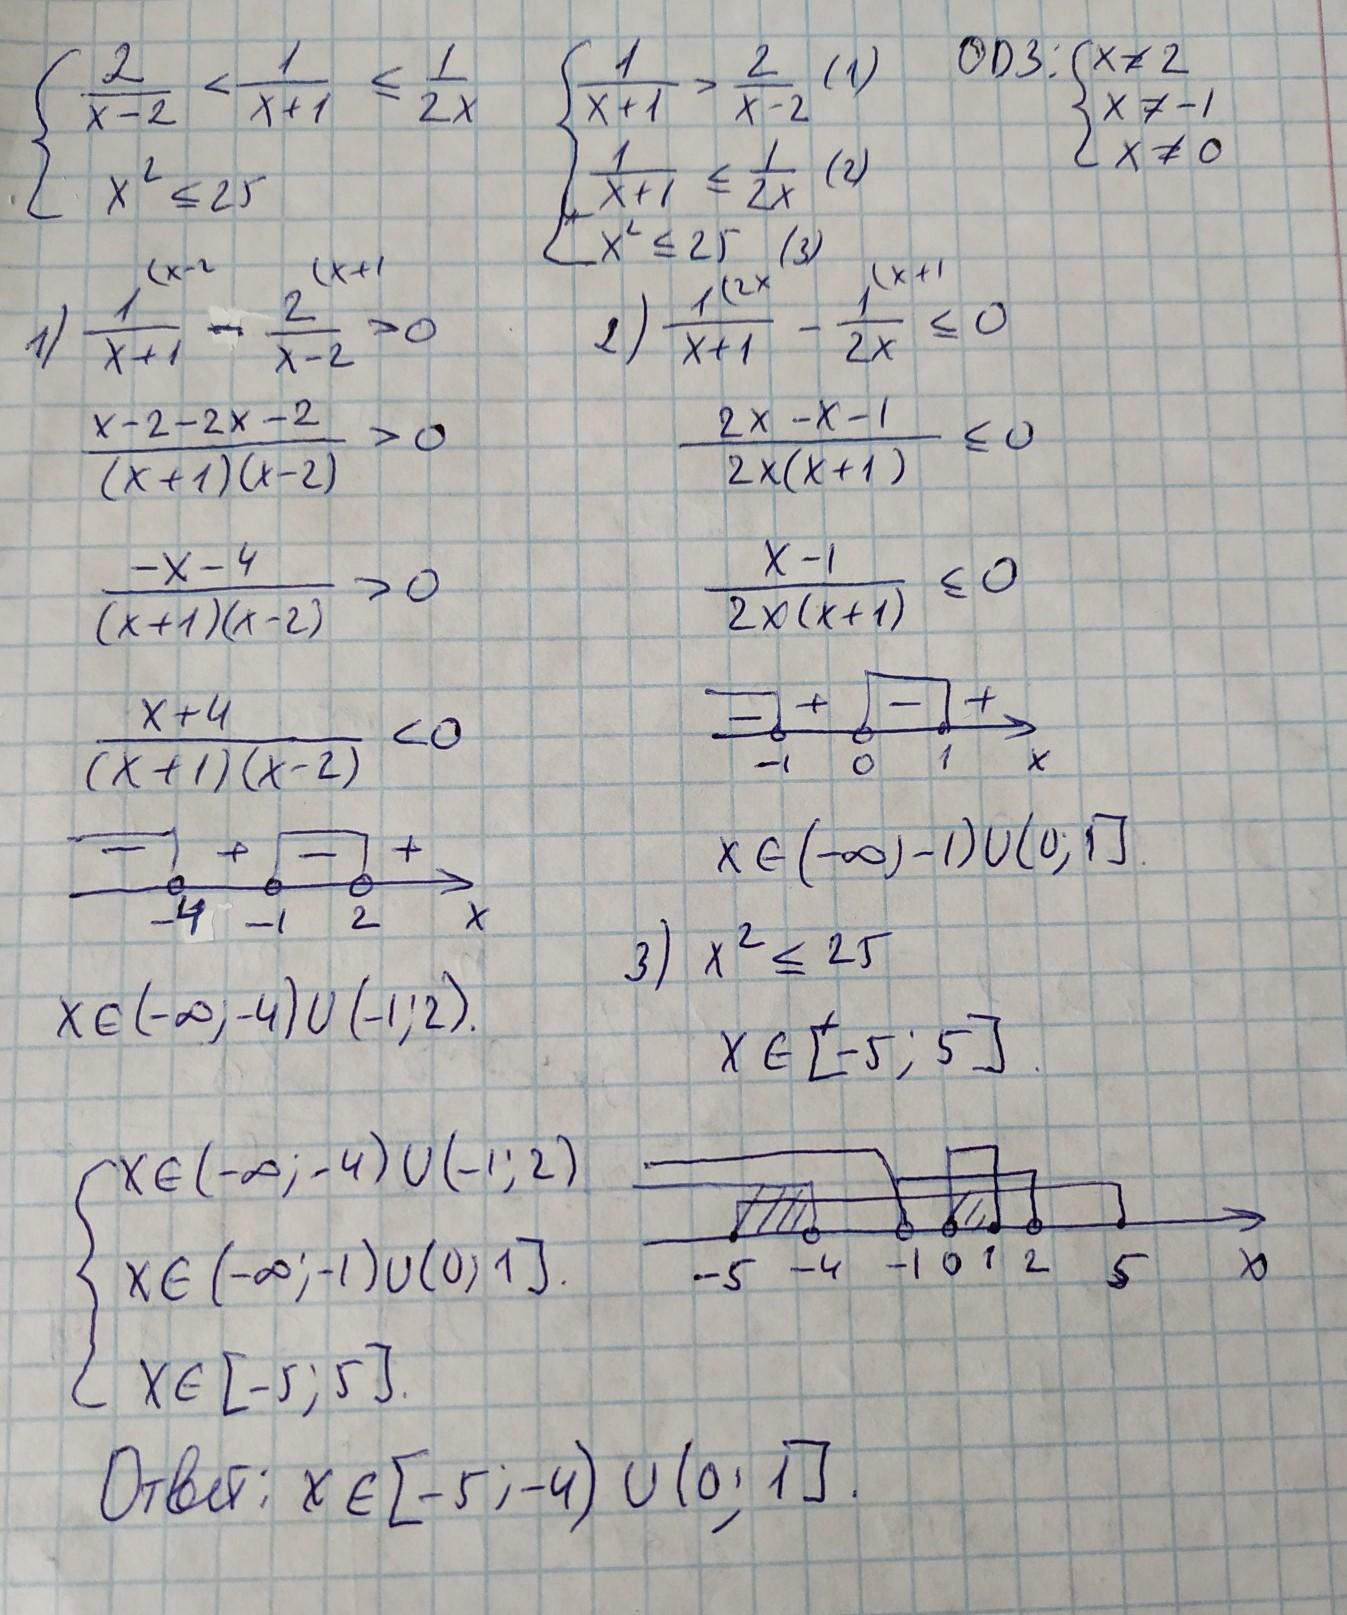 { 2/(x-2) < 1/(x+1) ≤ 1/(2x)
x² ≤ 25
{ 1/(x+1) > 2/(x-2) (1)
1/(x+1) ≤ 1/(2x) (2)
x² ≤ 25 (3)
ОДЗ: { x ≠ 2
x ≠ -1
x ≠ 0
1) 1^(x-2/(x+1) - 2^(x+1/(x-2) > 0
(x-2-2x-2)/((x+1)(x-2)) > 0
(-x-4)/((x+1)(x-2)) > 0
(x+4)/((x+1)(x-2)) < 0
− + − +
-4 -1 2 x
x∈(-∞;-4)∪(-1;2).
2) 1^(2x/(x+1) - 1^(x+1/(2x) ≤ 0
(2x-x-1)/(2x(x+1)) ≤ 0
(x-1)/(2x(x+1)) ≤ 0
− + − +
-1 0 1 x
x∈(-∞;-1)∪(0;1].
3) x² ≤ 25
x∈[-5;5].
{ x∈(-∞;-4)∪(-1;2)
x∈(-∞;-1)∪(0;1].
x∈[-5;5].
-5 -4 -1 0 1 2 5 x
Ответ: x∈[-5;-4)∪(0;1].